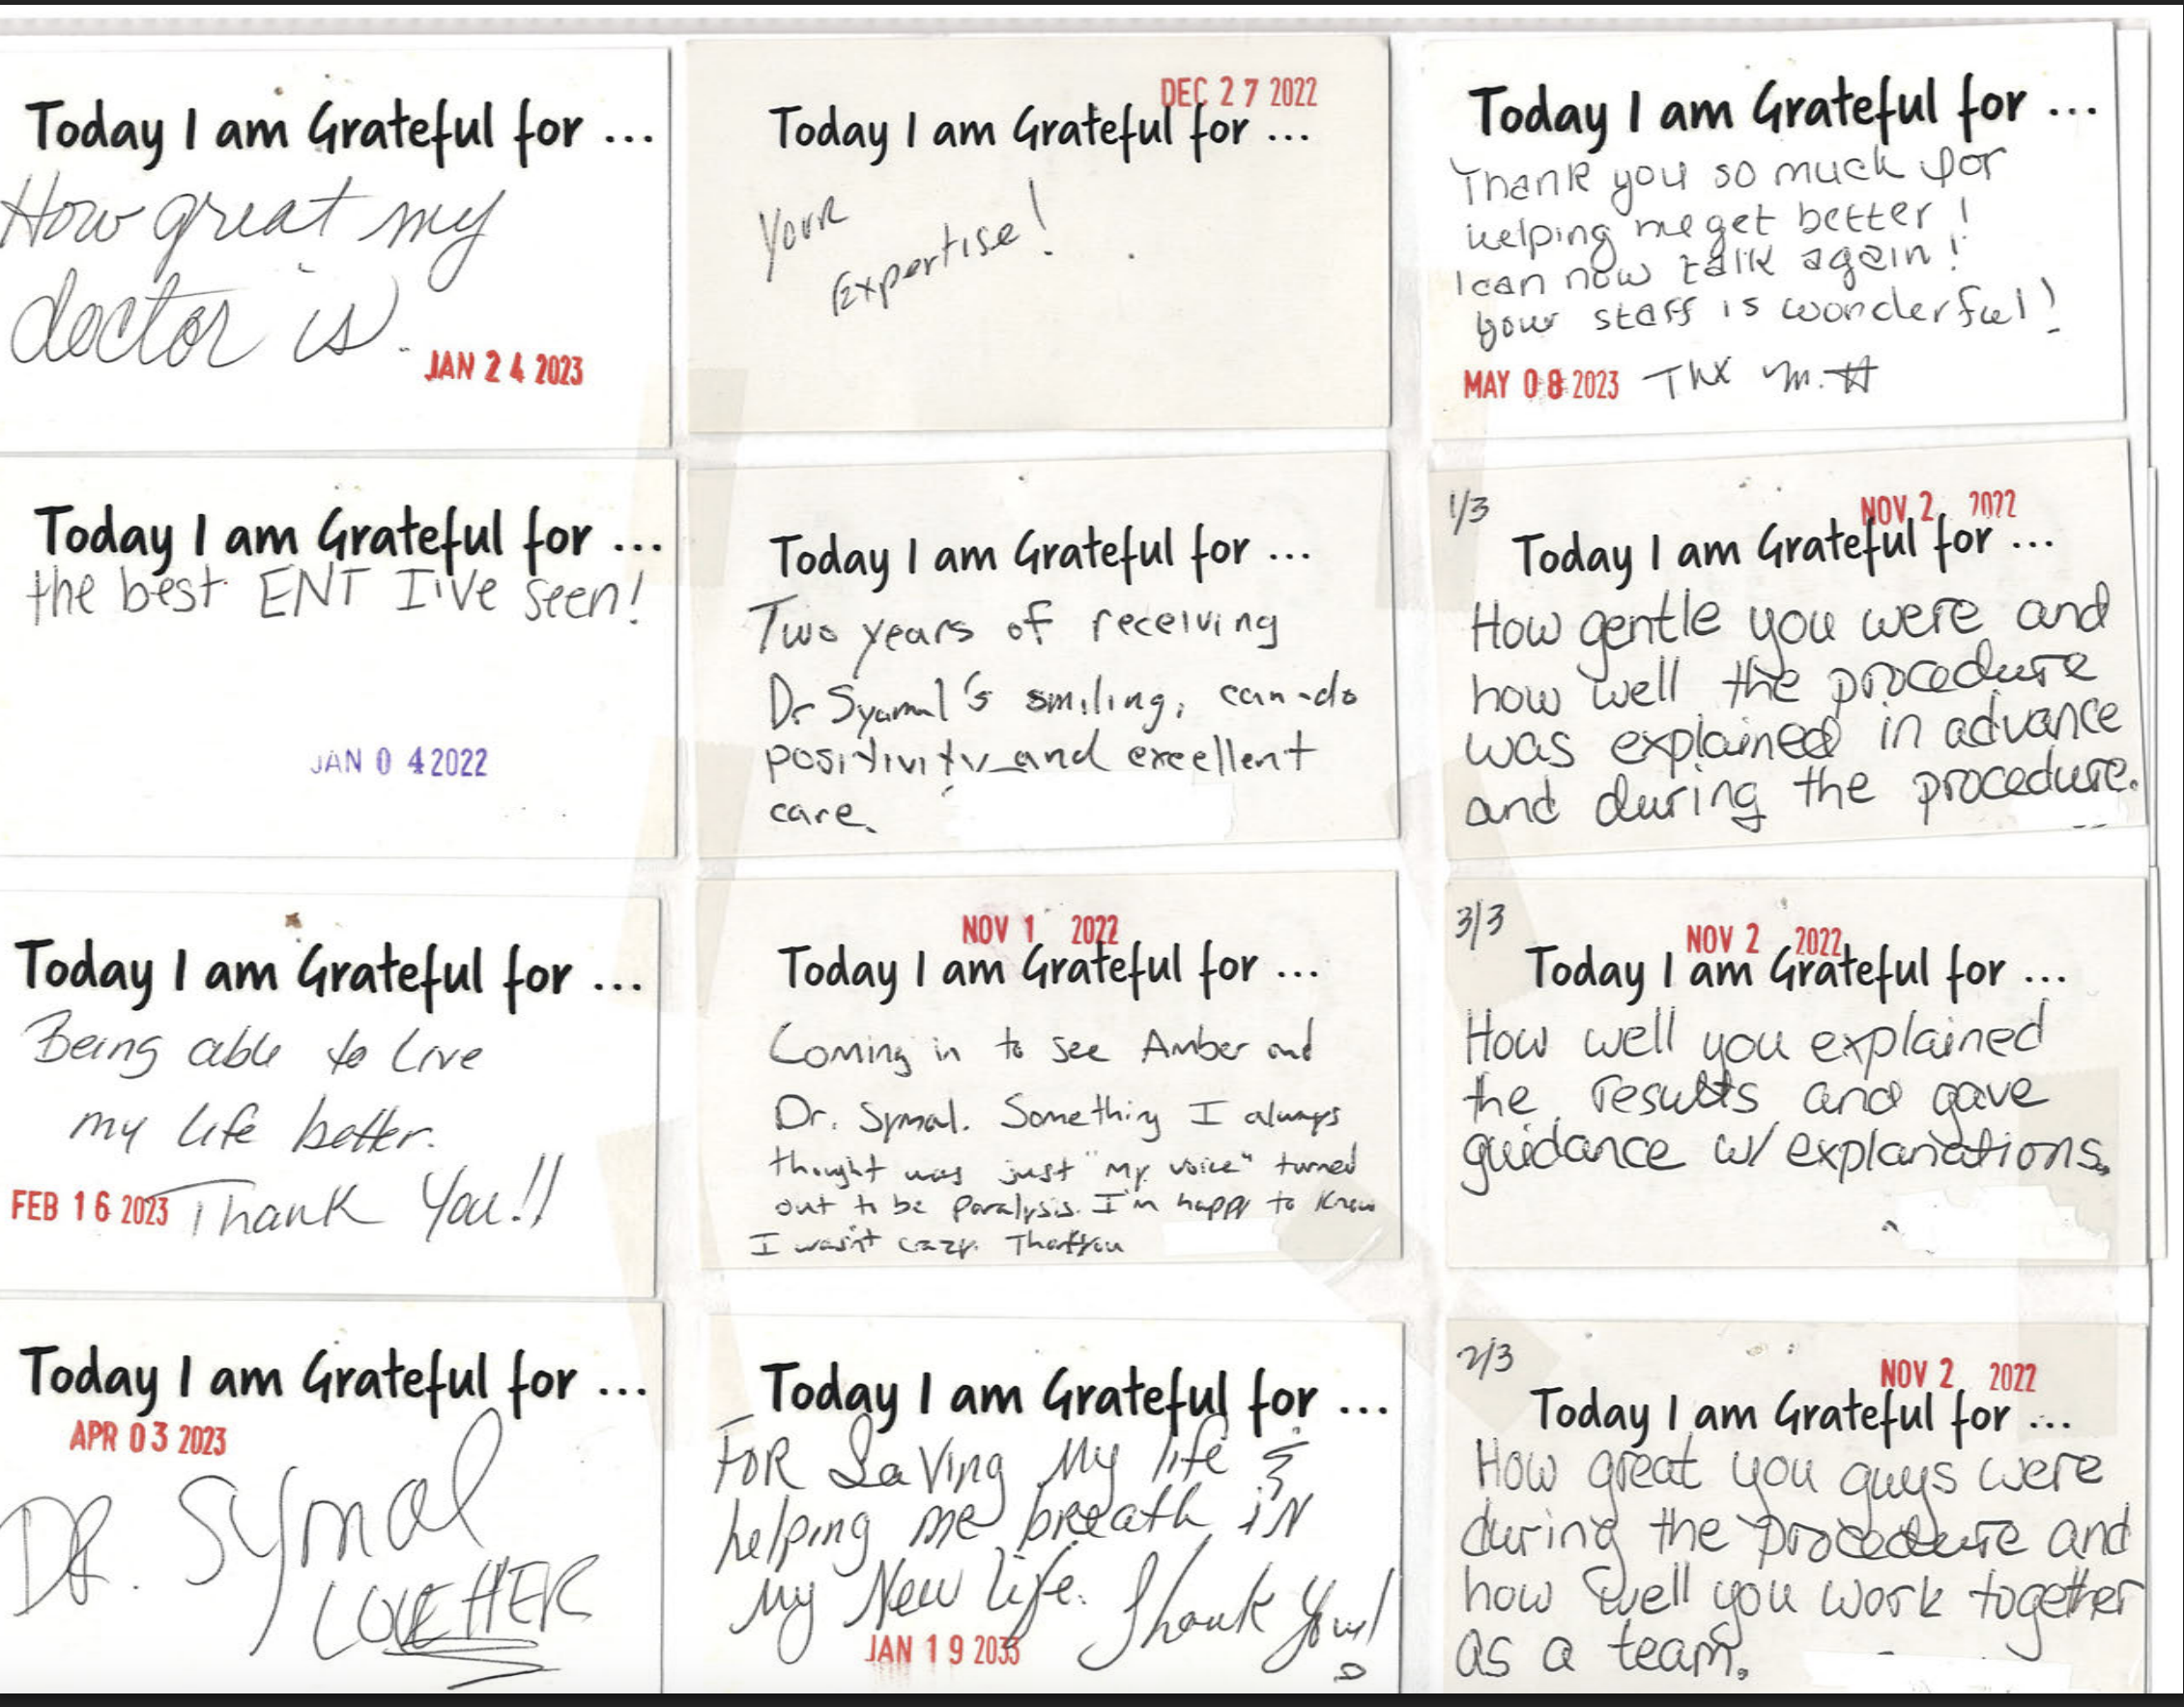 Today I am Grateful for ...
How great my
doctor is.
JAN 24 2023
DEC 27 2022
Today I am Grateful for ...
Your
Expertise!
Today I am Grateful for ...
Thank you so much for
helping me get better!
I can now talk again!
your staff is wonderful!
MAY 08 2023 THX M.H
Today I am Grateful for ...
the best ENT I've seen!
JAN 04 2022
Today I am Grateful for ...
Two years of receiving
Dr Syamal's smiling, can-do
positivity and excellent
care.
1/3
NOV 2 2022
Today I am Grateful for ...
How gentle you were and
how well the procedure
was explained in advance
and during the procedure.
Today I am Grateful for ...
Being able to Live
my life better.
FEB 16 2023 Thank You!!
NOV 1 2022
Today I am Grateful for ...
Coming in to see Amber and
Dr. Symal. Something I always
thought was just "my voice" turned
out to be paralysis. I'm happy to know
I wasn't crazy.
3/3
NOV 2 2022
Today I am Grateful for ...
How well you explained
the results and gave
guidance w/ explanations.
Today I am Grateful for ...
APR 03 2023
DR. Symal
LOVE HER
Today I am Grateful for ...
FOR Saving My life &
helping me breath iN
My New life. Thank You!
JAN 19 2033
2/3
NOV 2 2022
Today I am Grateful for ...
How great you guys were
during the procedure and
how well you work together
as a team.